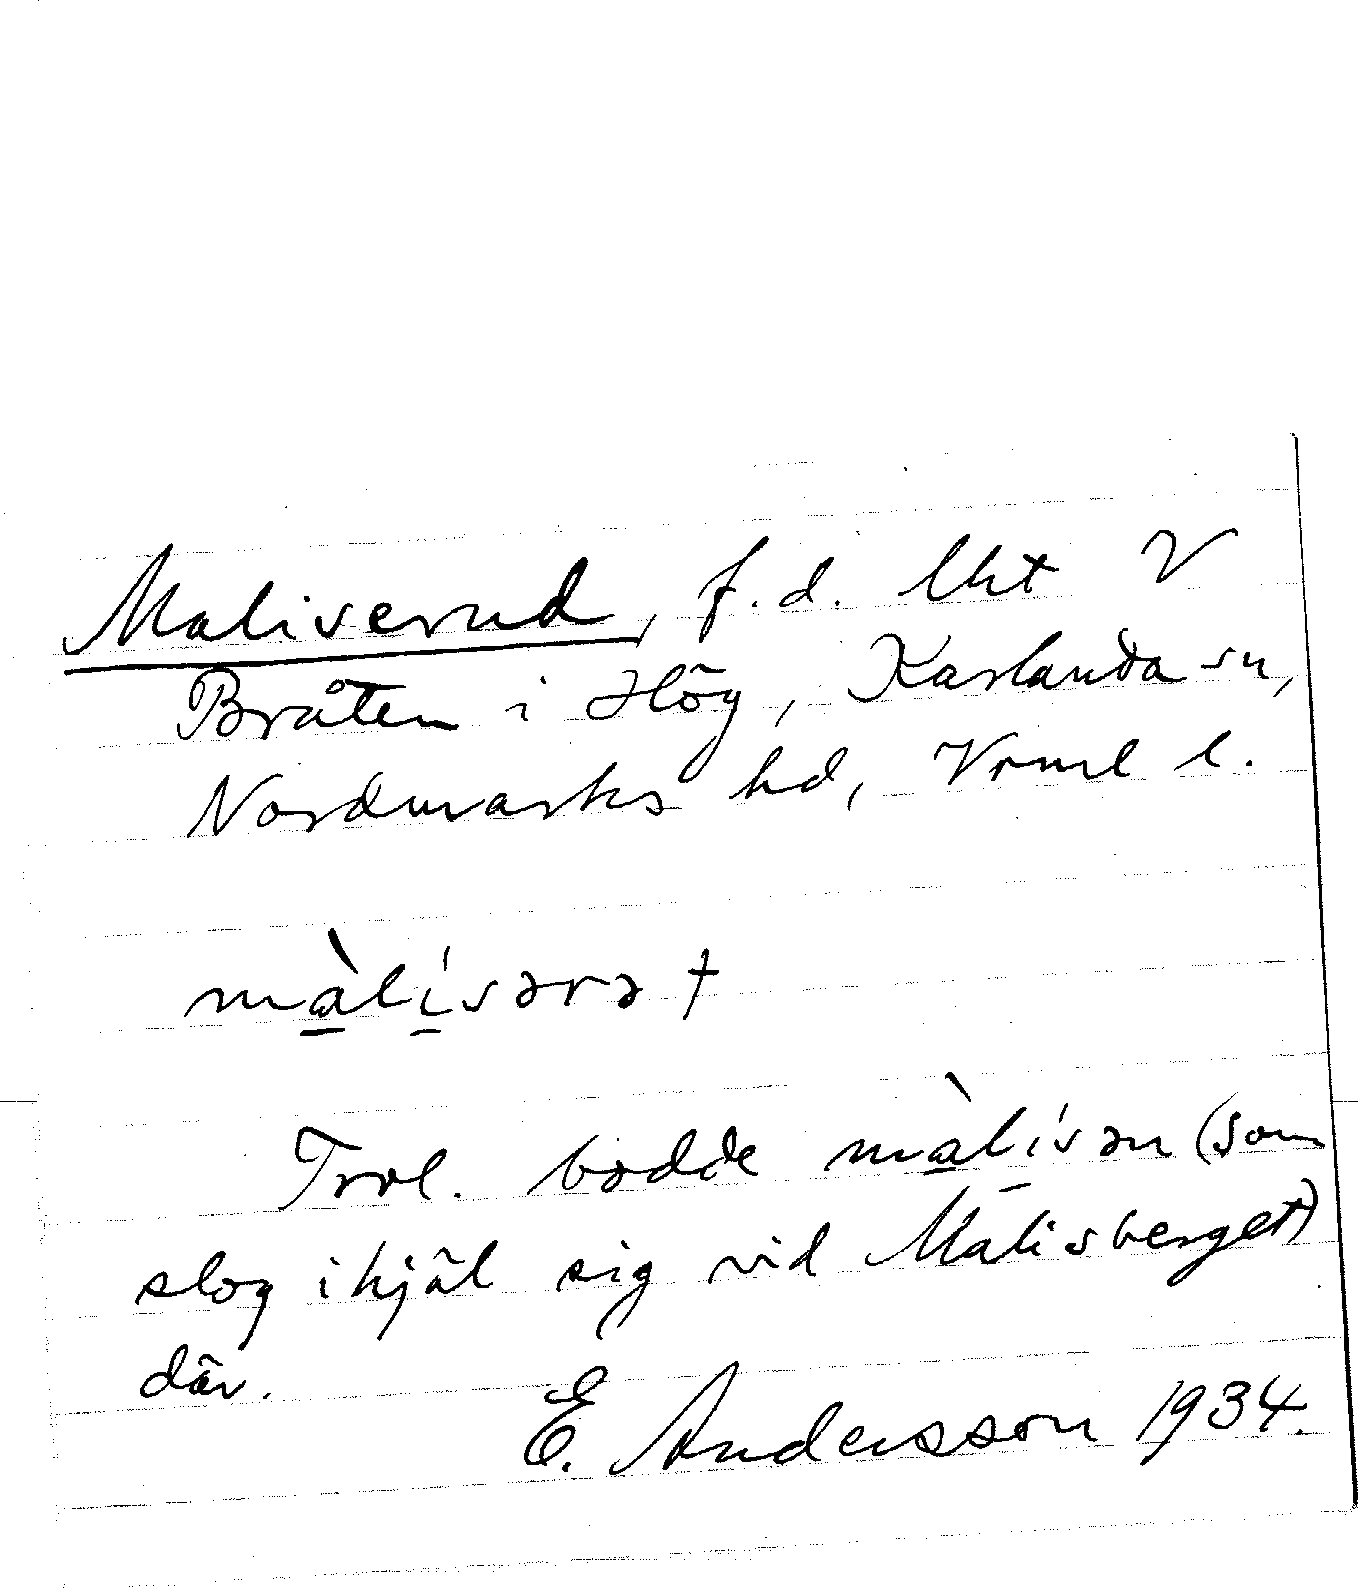 Maliserud, f.d. lht V
Bråten i Hög, Karlanda sn,
Nordmarks hd, Vrml l.
màlísərə †
Trol. bodde màlísən (som
slog ihjäl sig vid Malisberget)
där.
E. Andersson 1934.